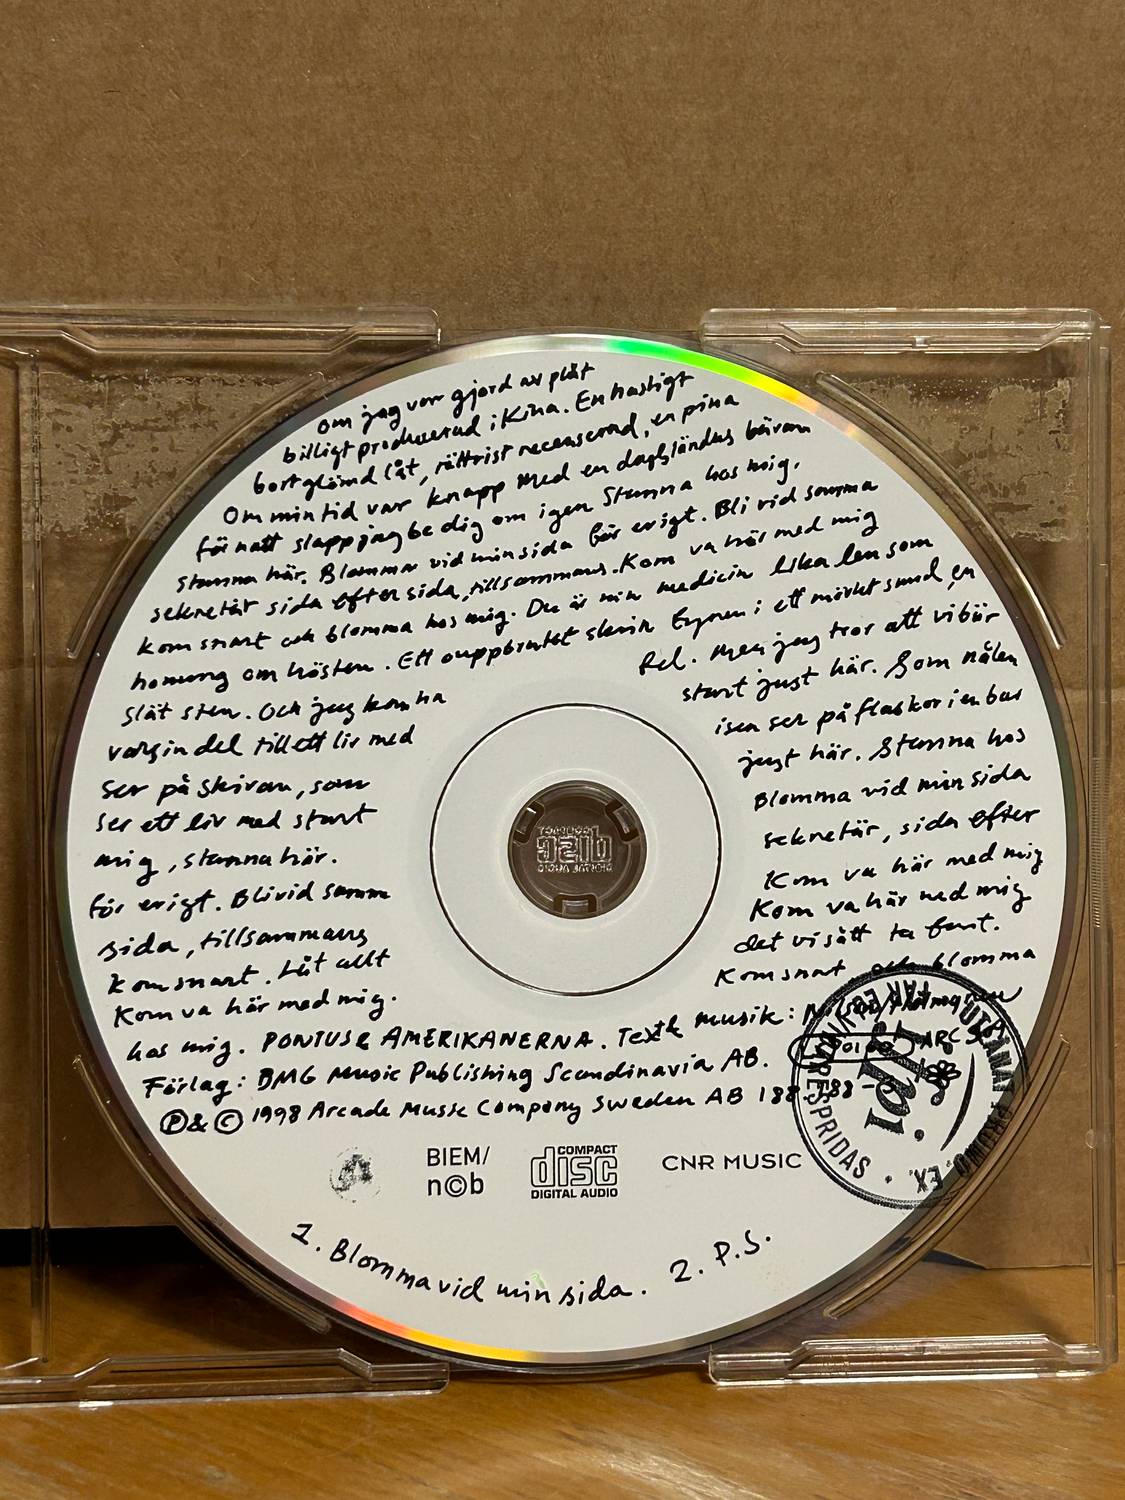 om jag var gjord av plåt
billigt producerad i Kina. En hastigt
bortglömd låt, rättvist recenserad, en pina
Om min tid var knapp med en dagsländas bävan
för natt slapp jag be dig om igen Stanna hos mig.
stanna här. Blomma vid min sida för evigt. Bli vid samma
sekretär sida efter sida, tillsammans. Kom va här med mig
kom snart och blomma hos mig. Du är min medicin lika len som
honung om hösten. Ett ouppbrutet skrin Fyren i ett mörkt sund, en
slät sten. Och jag kan ha fel. Men jag tror att vi bör
varsin del till ett liv med start just här. Som nålen
ser på skivan, som isen ser på flaskor i en bar
ser ett liv med start just här. Stanna hos
mig, stanna här. Blomma vid min sida
för evigt. Bli vid samma sekretär, sida efter
sida, tillsammans Kom va här med mig
kom snart. Låt allt Kom va här med mig
det vi sått ta form.
Kom va här med mig. Kom snart och blomma
hos mig. PONTUS & AMERIKANERNA. Text & Musik: Holmgren
Förlag: BMG Music Publishing Scandinavia AB.
Ⓟ & © 1998 Arcade Music Company Sweden AB 188
BIEM/
n©b
COMPACT
disc
DIGITAL AUDIO
CNR MUSIC
UTLÅNAT PROMO. EX.
FÅR EJ VIDARE SPRIDAS
ifpi
1. Blomma vid min sida. 2. P.S.